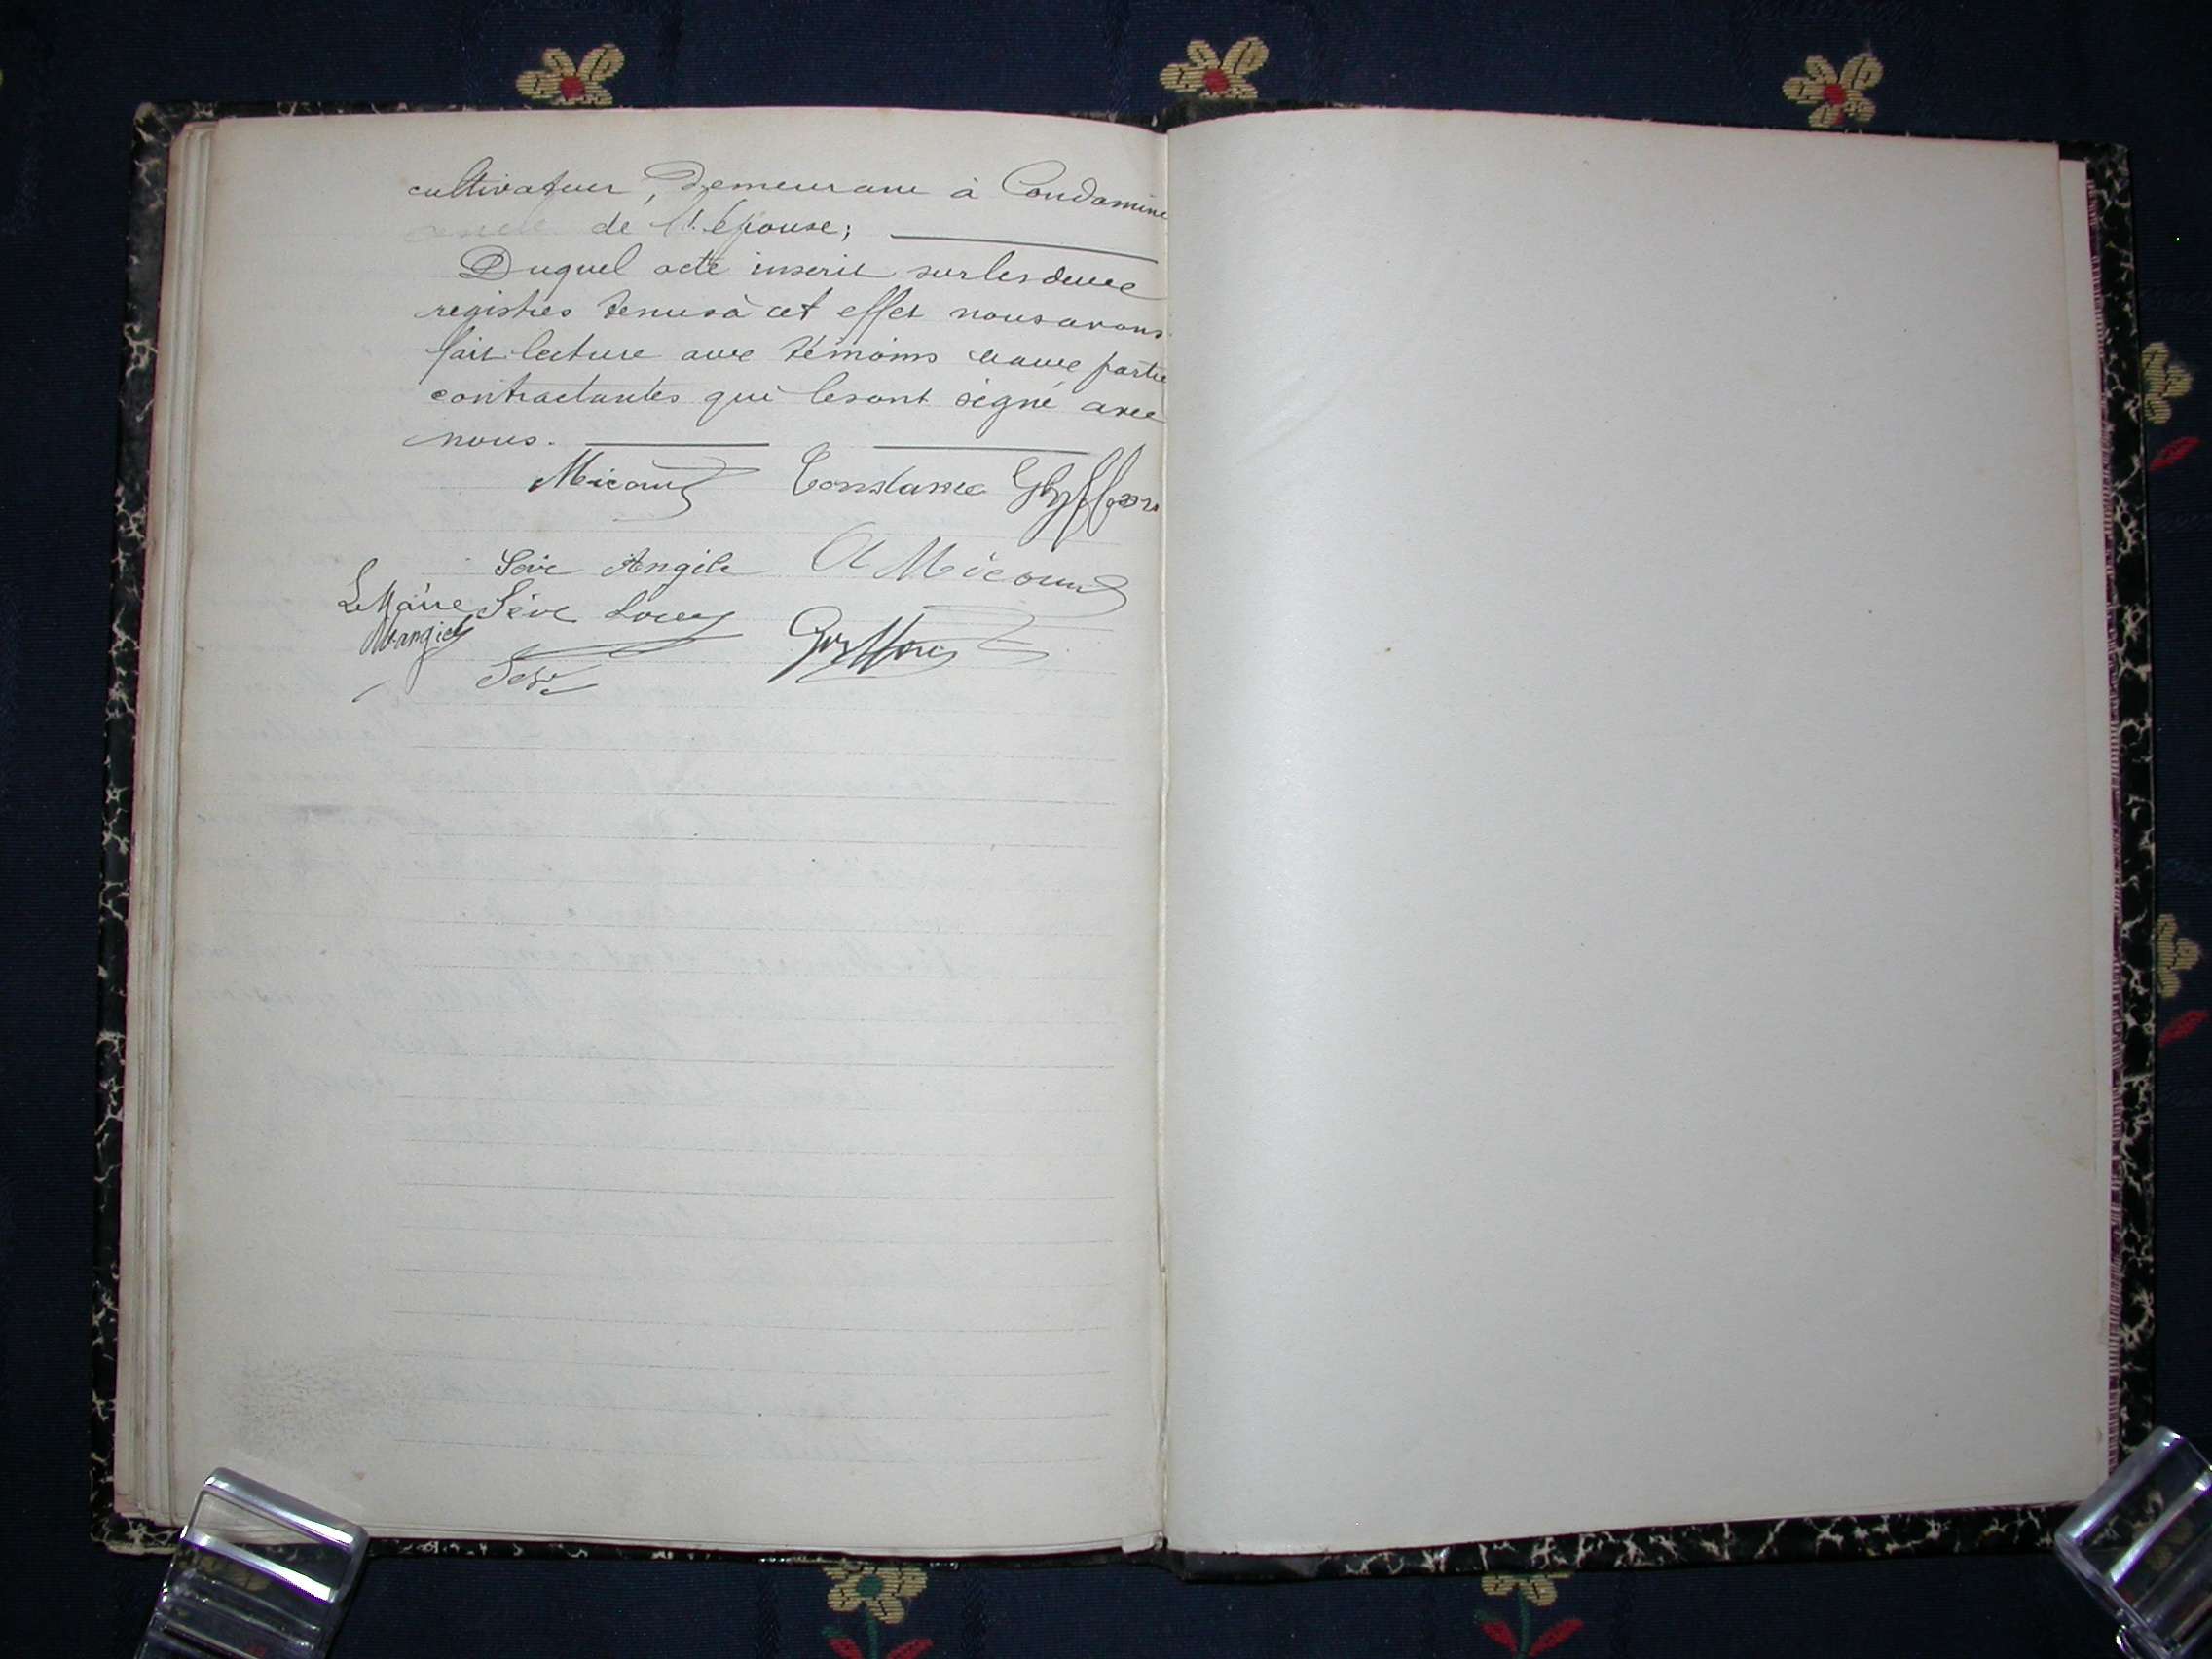 cultivateur, Demeurant à Condamine
oncle de l'épouse;
Duquel acte inscrit sur les deux
registres tenus à cet effet nous avons
fait lecture aux témoins et aux partie
contractantes qui les ont signé avec
nous.
Micoud Constance Gryffon
Sève Angèle A Micoud
Le Maire Sève Louis
Mangier Gryffon
Sève